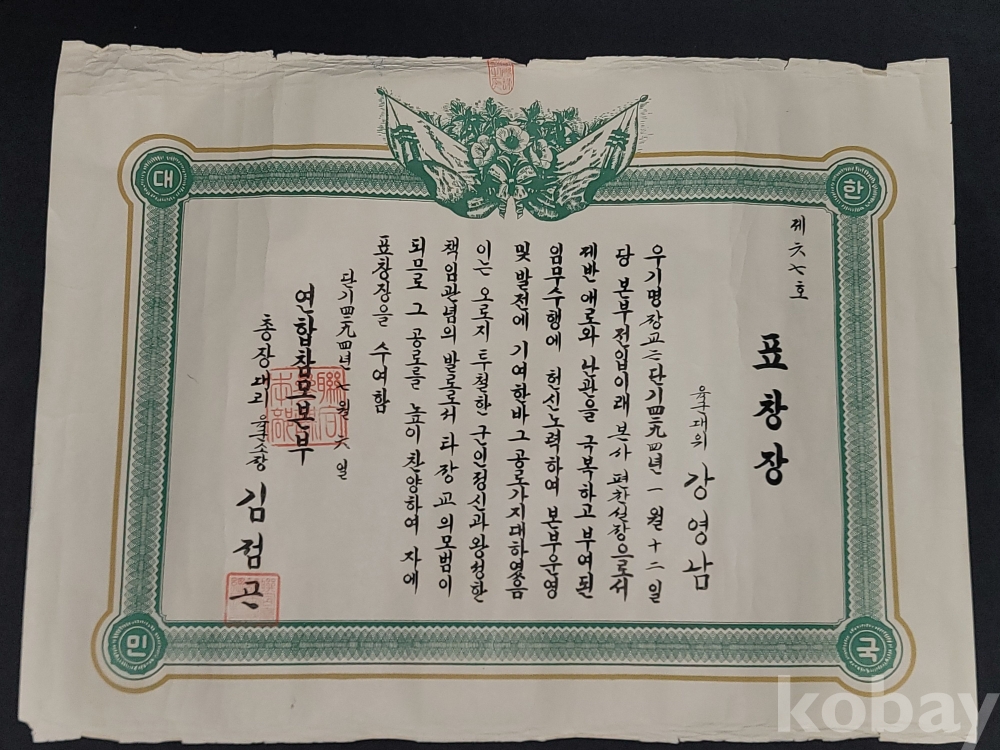 대
한
민
국
제六七호
표창장
육군대위 강영남
우기명장교는단기四二九四년 一월 十二일
당 본부전입이래 본사 편찬실장으로서
제반 애로와 난관을 극복하고 부여된
임무수행에 헌신노력하여 본부운영
및 발전에 기여한바 그공로가지대하였음
이는 오로지 투철한 군인정신과 왕성한
책임관념의 발로로서 타장교의모범이
되므로 그 공로를 높이찬양하여 자에
표창장을 수여함
단기四二九四년 七월 六일
연합참모본부
총장대리 육군소장 김점곤
kobay